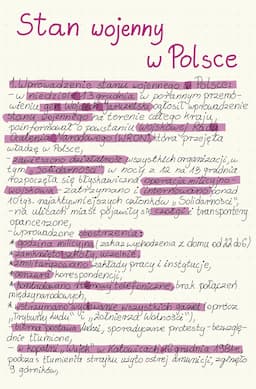 Stan wojenny
w Polsce
1. Wprowadzenie stanu wojennego w Polsce:
- w niedzielę 13 grudnia w porannym przemó-
wieniu gen. Wojciech Jaruzelski ogłosił wprowadzenie
stanu wojennego na terenie całego kraju,
poinformował o powstaniu Wojskowej Rady
Ocalenia Narodowego (WRON), która przejęła
władzę w Polsce,
- zawieszono działalność wszystkich organizacji, w
tym "Solidarności", w nocy z 12 na 13 grudnia
rozpoczęła się błyskawiczna operacja milicyjno-
wojskowa - zatrzymano i internowano ponad
10 tys. najaktywniejszych członków "Solidarności",
- na ulicach miast pojawiły się czołgi i transportery
opancerzone,
- wprowadzone obostrzenia:
godzina milicyjna (zakaz wychodzenia z domu od 22 do 6)
zamknięto szkoły, uczelnie,
zmilitaryzowano zakłady pracy i instytucje,
cenzura korespondencji,
rozmowy telefoniczne, brak połączeń
międzynarodowych,
wstrzymano wydawanie wszystkich gazet oprócz
"Trybuny Ludu" i "Żołnierza Wolności",
- bierna postawa ludzi, sporadyczne protesty - bezwzglę-
dnie tłumione,
- w kopalni "Wujek" w Katowicach 16 grudnia 1981r.
podczas tłumienia strajku użyto ostrej amunicji, zginęło
9 górników,